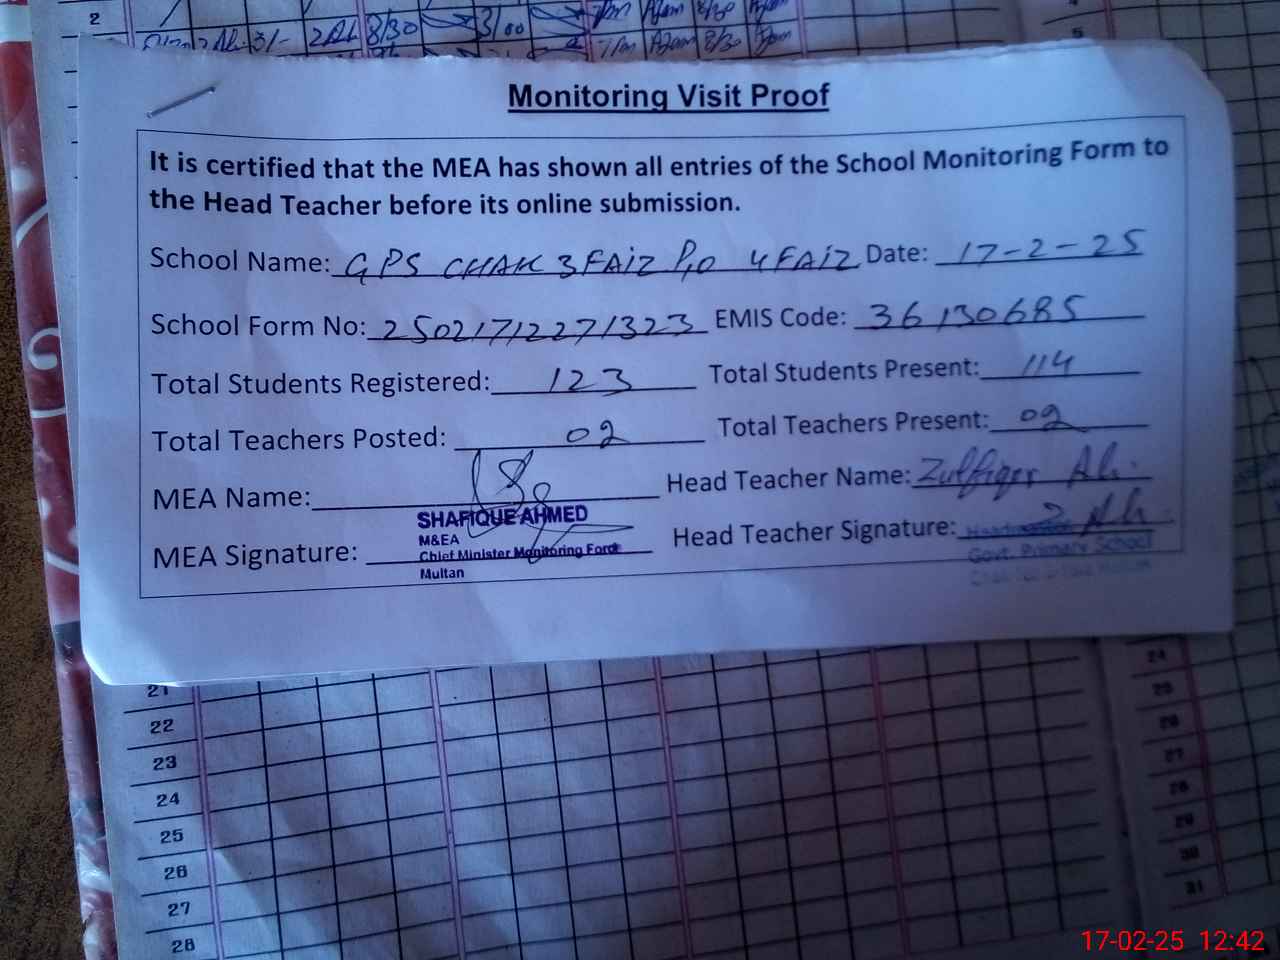 2
3/- 2Ali 8/30 3/00 7pm Azam 8/30
5
Monitoring Visit Proof
It is certified that the MEA has shown all entries of the School Monitoring Form to
the Head Teacher before its online submission.
School Name: GPS CHAK 3FAIZ P,O 4FAIZ Date: 17-2-25
School Form No: 25021712271323 EMIS Code: 36130685
Total Students Registered: 123 Total Students Present: 114
Total Teachers Posted: 02 Total Teachers Present: 02
MEA Name: Head Teacher Name: Zulfiqar Ali
SHAFIQUE AHMED
M&EA
MEA Signature: Chief Minister Monitoring Force Head Teacher Signature: Z Ali
Multan
Govt. Primary School
21
22
23
24
25
26
27
28
24
25
26
27
28
29
30
31
17-02-25 12:42